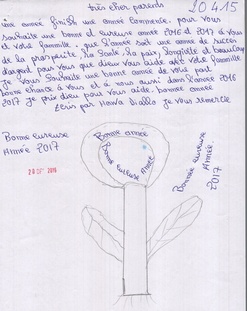 très cher parents
20415
une année finish une année commence. pour vous
souhaite une bonne et eureuse année 2016 et 2017 à vous
et votre fammille. que l'année soit une année de succès
de la prospérité, la santé, la paix, longivité et beaucoup
d'argent pour vous que dieu vous aide avec votre famille
je vous souhaite une bonne année de votre part
bonne chance à vous et à nous aussi dans l'année 2016
2017 je prix dieu pour vous aide. bonne année
écrit par Diallo je vous remercie
Bonne eureuse
Année 2017
28 DEC 2016
Bonne année
Bonne eureuse Année
Bonnée eureuse
Année.
2017